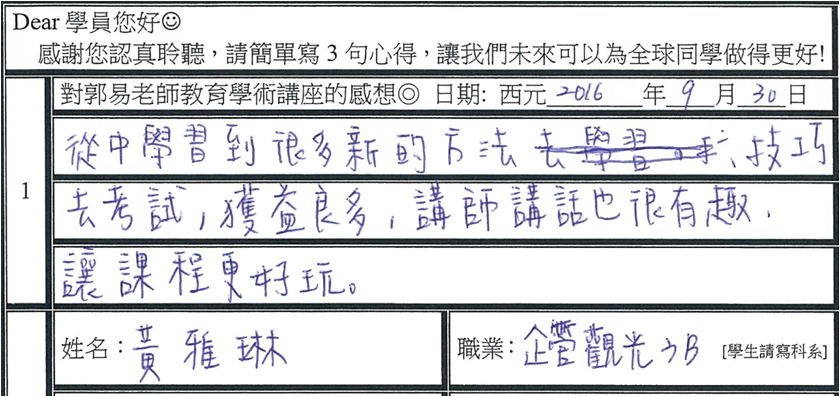 Dear 學員您好☺
感謝您認真聆聽，請簡單寫 3 句心得，讓我們未來可以為全球同學做得更好!
對郭易老師教育學術講座的感想◎ 日期: 西元 2016 年 9 月 30 日
1
從中學習到很多新的方法去學習。、技巧
去考試，獲益良多，講師講話也很有趣，
讓課程更好玩。
姓名：黃雅琳
職業：企管觀光ㄅB [學生請寫科系]